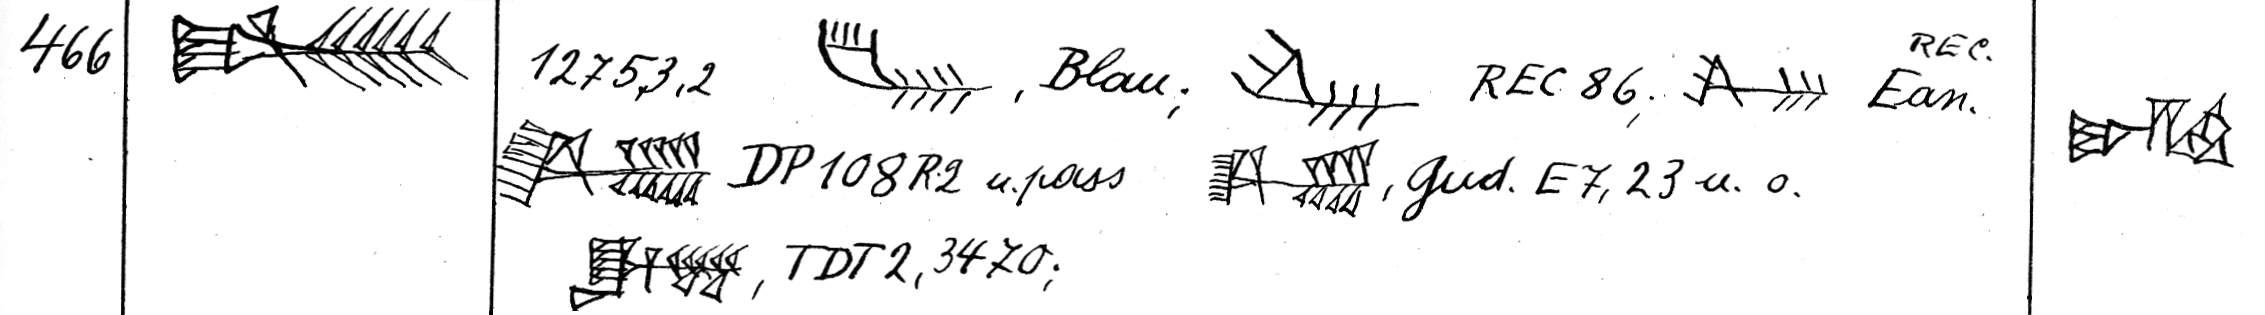 466 12753,2 , Blau; REC 86; REC. Ean.
DP 108 R.2 u. pass , Gud. E 7, 23 u. o.
, TDT 2, 3470;